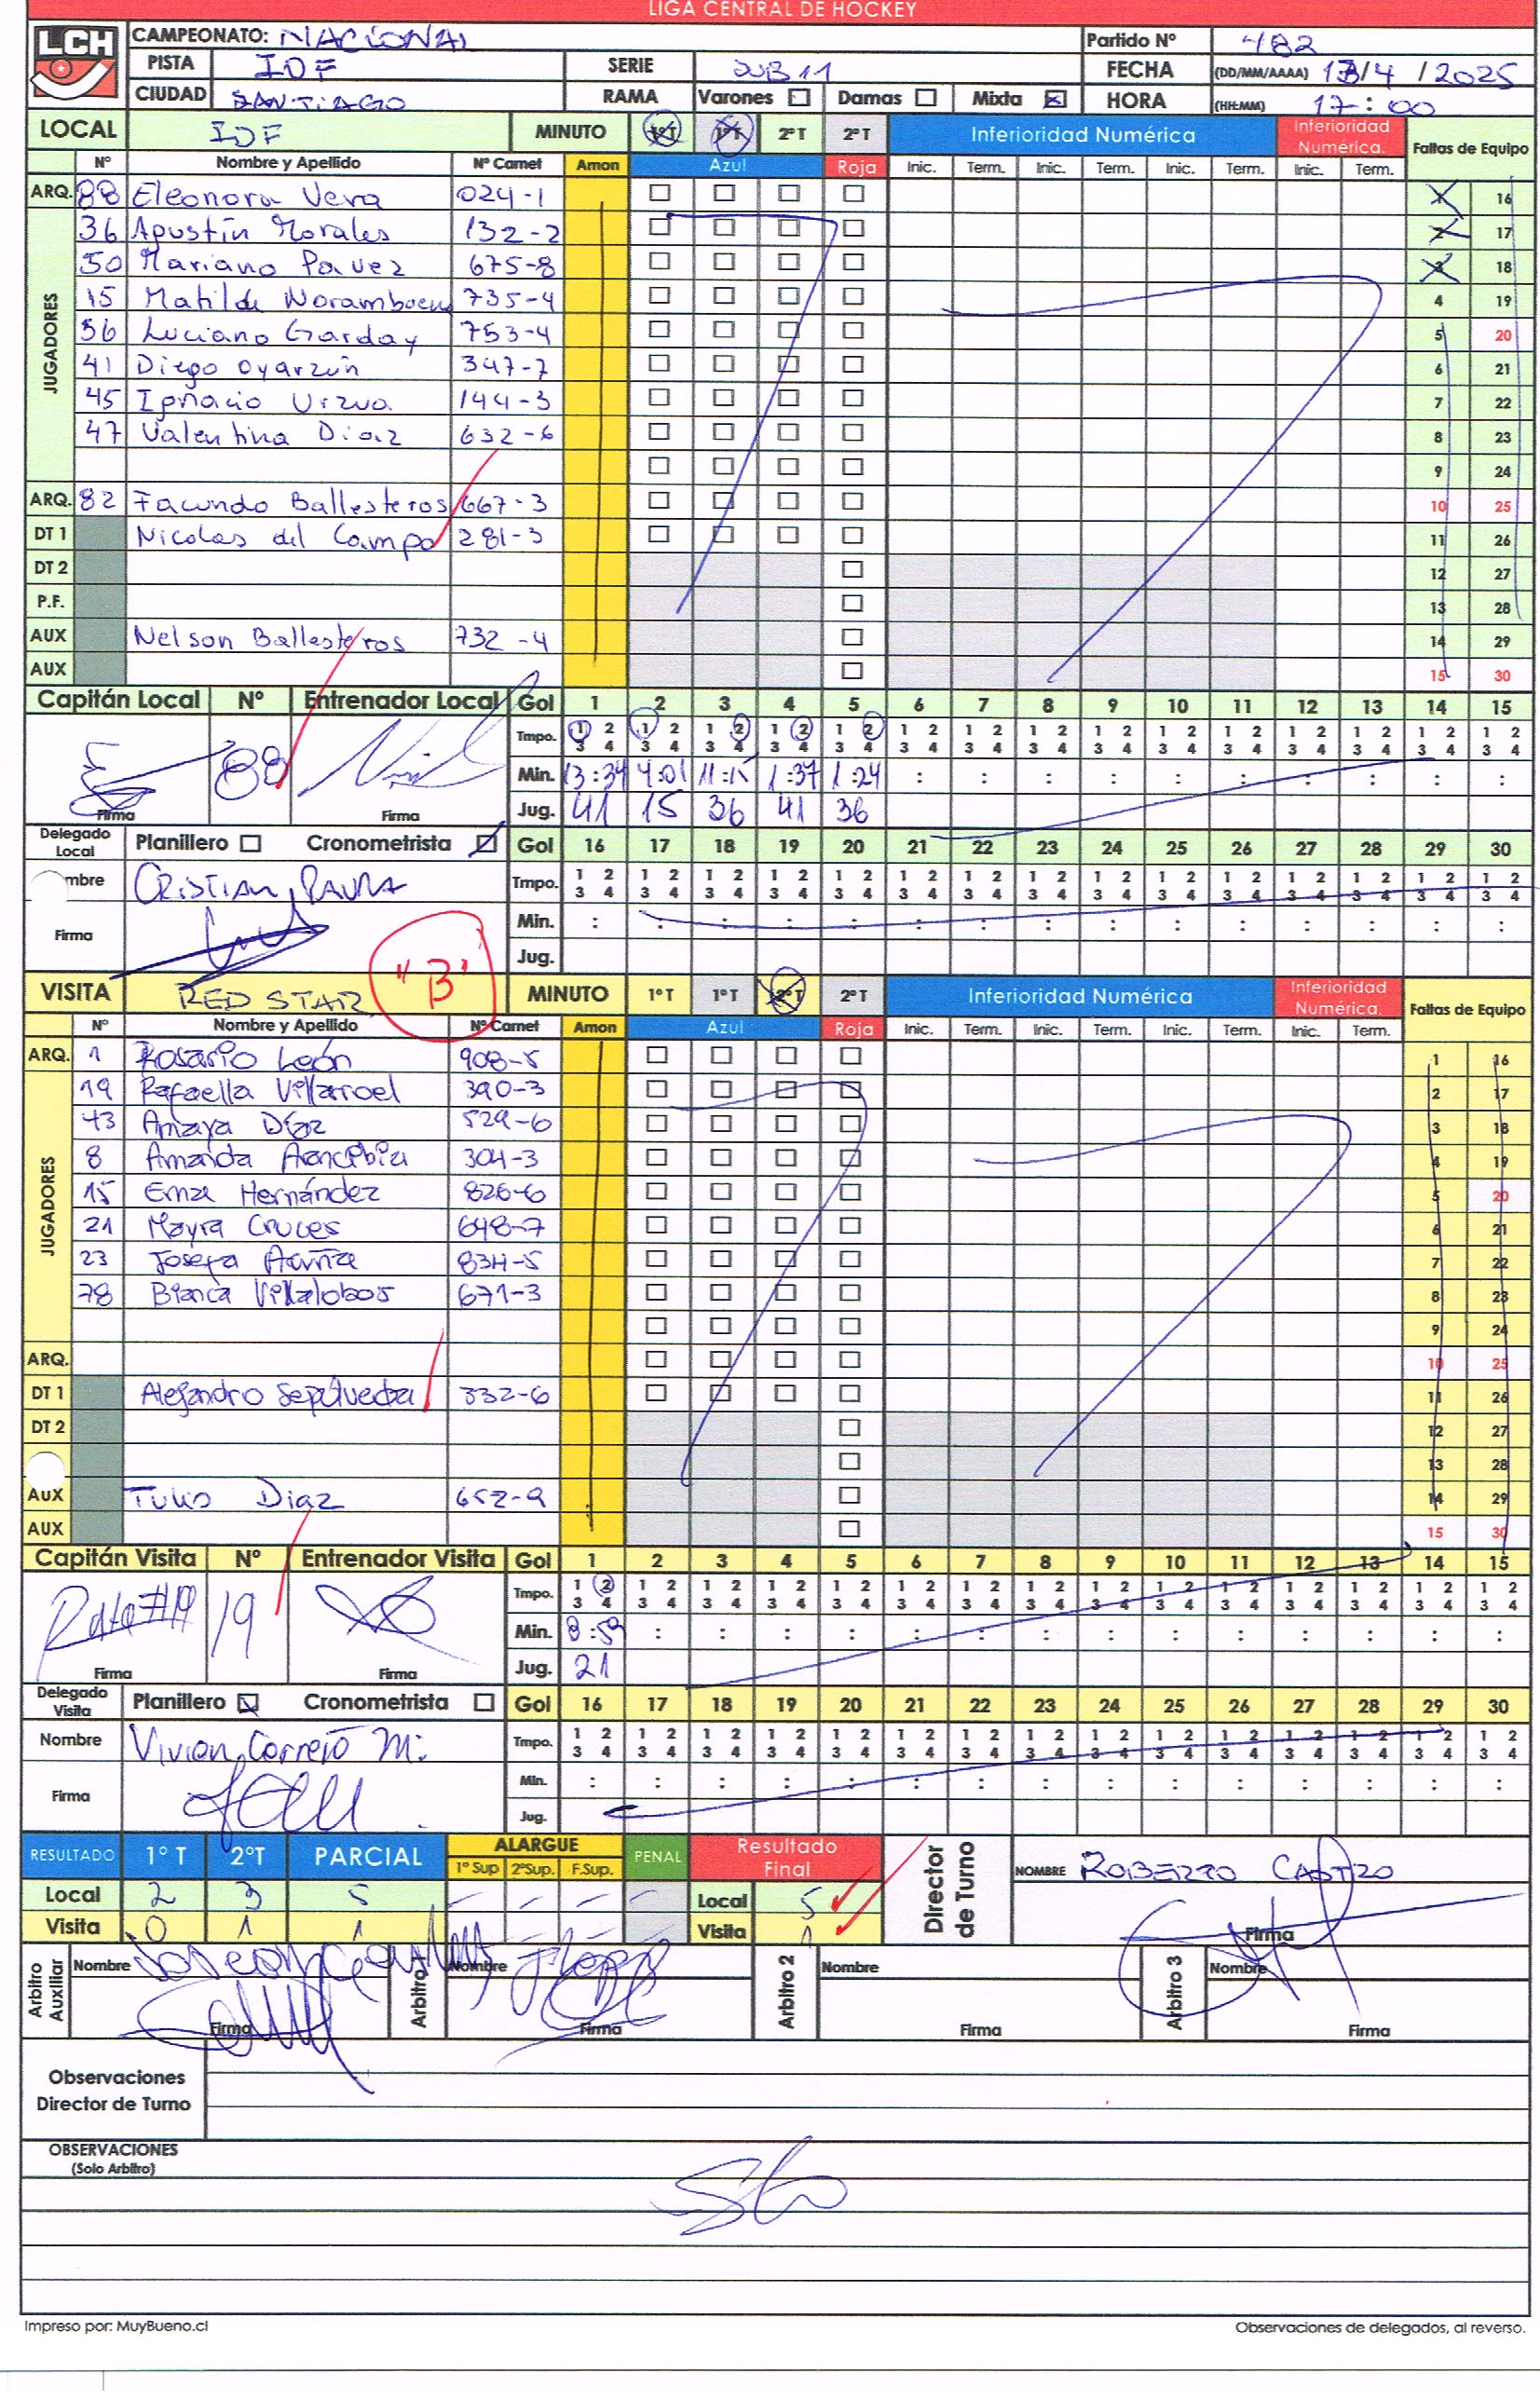 LIGA CENTRAL DE HOCKEY
LCH
CAMPEONATO: NACIONAL Partido Nº 482
PISTA IDF SERIE SUB 11 FECHA (DD/MM/AAAA) 13/4/2025
CIUDAD SANTIAGO RAMA Varones Damas Mixta HORA (HH:MM) 17:00
LOCAL IDF MINUTO 1ºT 1ºT 2ºT 2ºT Inferioridad Numérica Inferioridad Numérica. Faltas de Equipo
Nº Nombre y Apellido Nº Carnet Amon Azul Roja Inic. Term. Inic. Term. Inic. Term. Inic. Term.
ARQ. 88 Eleonora Vera 024-1 1 16
JUGADORES
36 Agustín Morales 132-2 2 17
50 Mariano Pavez 675-8 3 18
15 Matilde Norambuena 735-4 4 19
56 Luciano Garday 753-4 5 20
41 Diego Oyarzún 347-7 6 21
45 Ignacio Urzua 144-3 7 22
47 Valentina Diaz 632-6 8 23
9 24
ARQ. 82 Facundo Ballesteros 667-3 10 25
DT 1 Nicolas del Campo 281-3 11 26
DT 2 12 27
P.F. 13 28
AUX Nelson Ballesteros 732-4 14 29
AUX 15 30
Capitán Local Nº Entrenador Local Gol 1 2 3 4 5 6 7 8 9 10 11 12 13 14 15
Tmpo. 1 2 3 4 1 2 3 4 1 2 3 4 1 2 3 4 1 2 3 4 1 2 3 4 1 2 3 4 1 2 3 4 1 2 3 4 1 2 3 4 1 2 3 4 1 2 3 4 1 2 3 4 1 2 3 4 1 2 3 4
88 Min. 13:34 4:01 11:15 1:37 1:24 : : : : : : : : : :
Firma Firma Jug. 41 15 36 41 36
Delegado Local Planillero Cronometrista Gol 16 17 18 19 20 21 22 23 24 25 26 27 28 29 30
mbre CRISTIAN Tmpo. 1 2 3 4 1 2 3 4 1 2 3 4 1 2 3 4 1 2 3 4 1 2 3 4 1 2 3 4 1 2 3 4 1 2 3 4 1 2 3 4 1 2 3 4 1 2 3 4 1 2 3 4 1 2 3 4 1 2 3 4
Firma Min. : : : : : : : : : : : : : : :
Jug.
VISITA RED STAR "B" MINUTO 1ºT 1ºT 2ºT 2ºT Inferioridad Numérica Inferioridad Numérica. Faltas de Equipo
Nº Nombre y Apellido Nº Carnet Amon Azul Roja Inic. Term. Inic. Term. Inic. Term. Inic. Term.
ARQ. 1 Rosario León 908-5 1 16
JUGADORES
19 Rafaella Villarroel 390-3 2 17
43 Amaya Díaz 529-6 3 18
8 Amanda Arancibia 304-3 4 19
15 Ema Hernández 826-6 5 20
21 Mayra Cruces 648-7 6 21
23 Josefa 834-5 7 22
78 Bianca Villalobos 671-3 8 23
9 24
ARQ. 10 25
DT 1 Alejandro Sepúlveda 332-6 11 26
DT 2 12 27
13 28
AUX Tulio Diaz 652-9 14 29
AUX 15 30
Capitán Visita Nº Entrenador Visita Gol 1 2 3 4 5 6 7 8 9 10 11 12 13 14 15
Tmpo. 1 2 3 4 1 2 3 4 1 2 3 4 1 2 3 4 1 2 3 4 1 2 3 4 1 2 3 4 1 2 3 4 1 2 3 4 1 2 3 4 1 2 3 4 1 2 3 4 1 2 3 4 1 2 3 4 1 2 3 4
19 Min. 8:59 : : : : : : : : : : : : : :
Firma Firma Jug. 21
Delegado Visita Planillero Cronometrista Gol 16 17 18 19 20 21 22 23 24 25 26 27 28 29 30
Nombre Vivian Cornejo M. Tmpo. 1 2 3 4 1 2 3 4 1 2 3 4 1 2 3 4 1 2 3 4 1 2 3 4 1 2 3 4 1 2 3 4 1 2 3 4 1 2 3 4 1 2 3 4 1 2 3 4 1 2 3 4 1 2 3 4 1 2 3 4
Firma Min. : : : : : : : : : : : : : : :
Jug.
RESULTADO 1º T 2ºT PARCIAL ALARGUE 1º Sup 2ºSup. F.Sup. PENAL Resultado Final Director de Turno NOMBRE ROBERTO CASTRO
Local 2 3 5 - - - - Local 5
Visita 0 1 1 Visita 1 Firma
Arbitro Auxiliar Nombre Arbitro 1 Nombre Arbitro 2 Nombre Arbitro 3 Nombre
Firma Firma Firma Firma
Observaciones Director de Turno
OBSERVACIONES
(Solo Arbitro)
Impreso por: MuyBueno.cl Observaciones de delegados, al reverso.